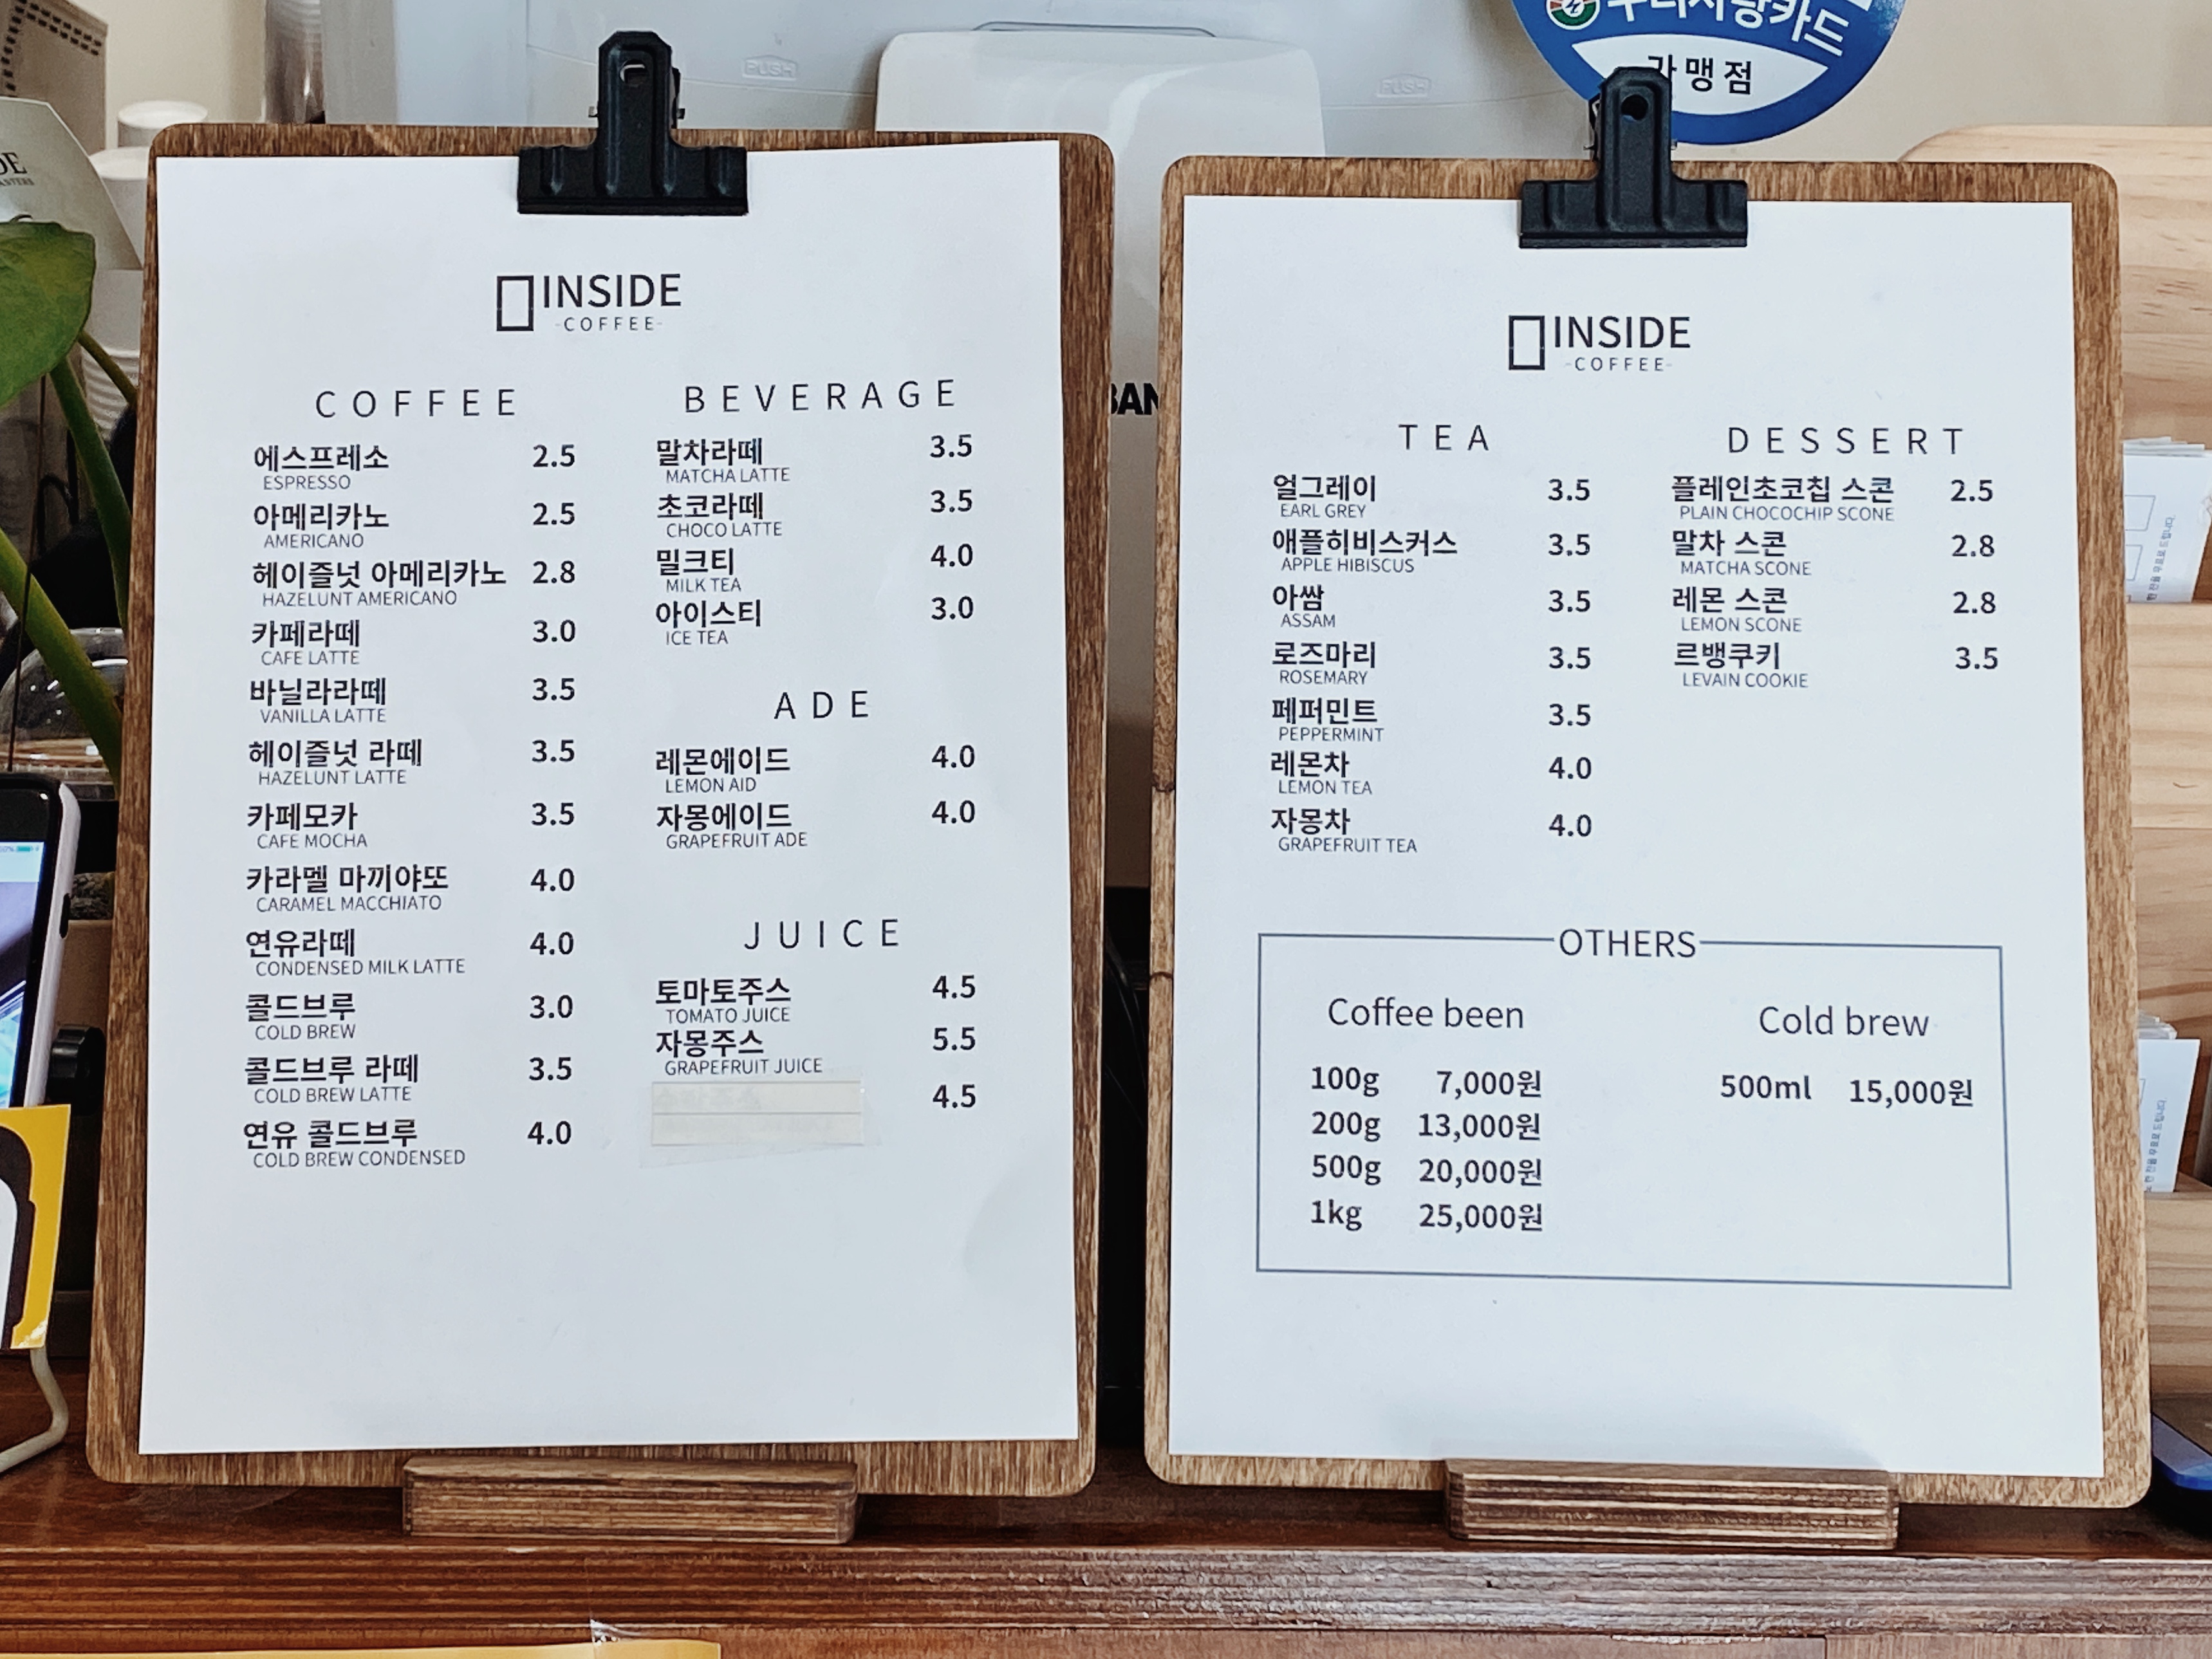 우리사랑카드
가맹점
PUSH
PUSH
INSIDE
-COFFEE-
COFFEE
에스프레소 2.5
ESPRESSO
아메리카노 2.5
AMERICANO
헤이즐넛 아메리카노 2.8
HAZELUNT AMERICANO
카페라떼 3.0
CAFE LATTE
바닐라라떼 3.5
VANILLA LATTE
헤이즐넛 라떼 3.5
HAZELUNT LATTE
카페모카 3.5
CAFE MOCHA
카라멜 마끼야또 4.0
CARAMEL MACCHIATO
연유라떼 4.0
CONDENSED MILK LATTE
콜드브루 3.0
COLD BREW
콜드브루 라떼 3.5
COLD BREW LATTE
연유 콜드브루 4.0
COLD BREW CONDENSED
BEVERAGE
말차라떼 3.5
MATCHA LATTE
초코라떼 3.5
CHOCO LATTE
밀크티 4.0
MILK TEA
아이스티 3.0
ICE TEA
ADE
레몬에이드 4.0
LEMON AID
자몽에이드 4.0
GRAPEFRUIT ADE
JUICE
토마토주스 4.5
TOMATO JUICE
자몽주스 5.5
GRAPEFRUIT JUICE
4.5
INSIDE
-COFFEE-
TEA
얼그레이 3.5
EARL GREY
애플히비스커스 3.5
APPLE HIBISCUS
아쌈 3.5
ASSAM
로즈마리 3.5
ROSEMARY
페퍼민트 3.5
PEPPERMINT
레몬차 4.0
LEMON TEA
자몽차 4.0
GRAPEFRUIT TEA
DESSERT
플레인초코칩 스콘 2.5
PLAIN CHOCOCHIP SCONE
말차 스콘 2.8
MATCHA SCONE
레몬 스콘 2.8
LEMON SCONE
르뱅쿠키 3.5
LEVAIN COOKIE
OTHERS
Coffee been
100g 7,000원
200g 13,000원
500g 20,000원
1kg 25,000원
Cold brew
500ml 15,000원